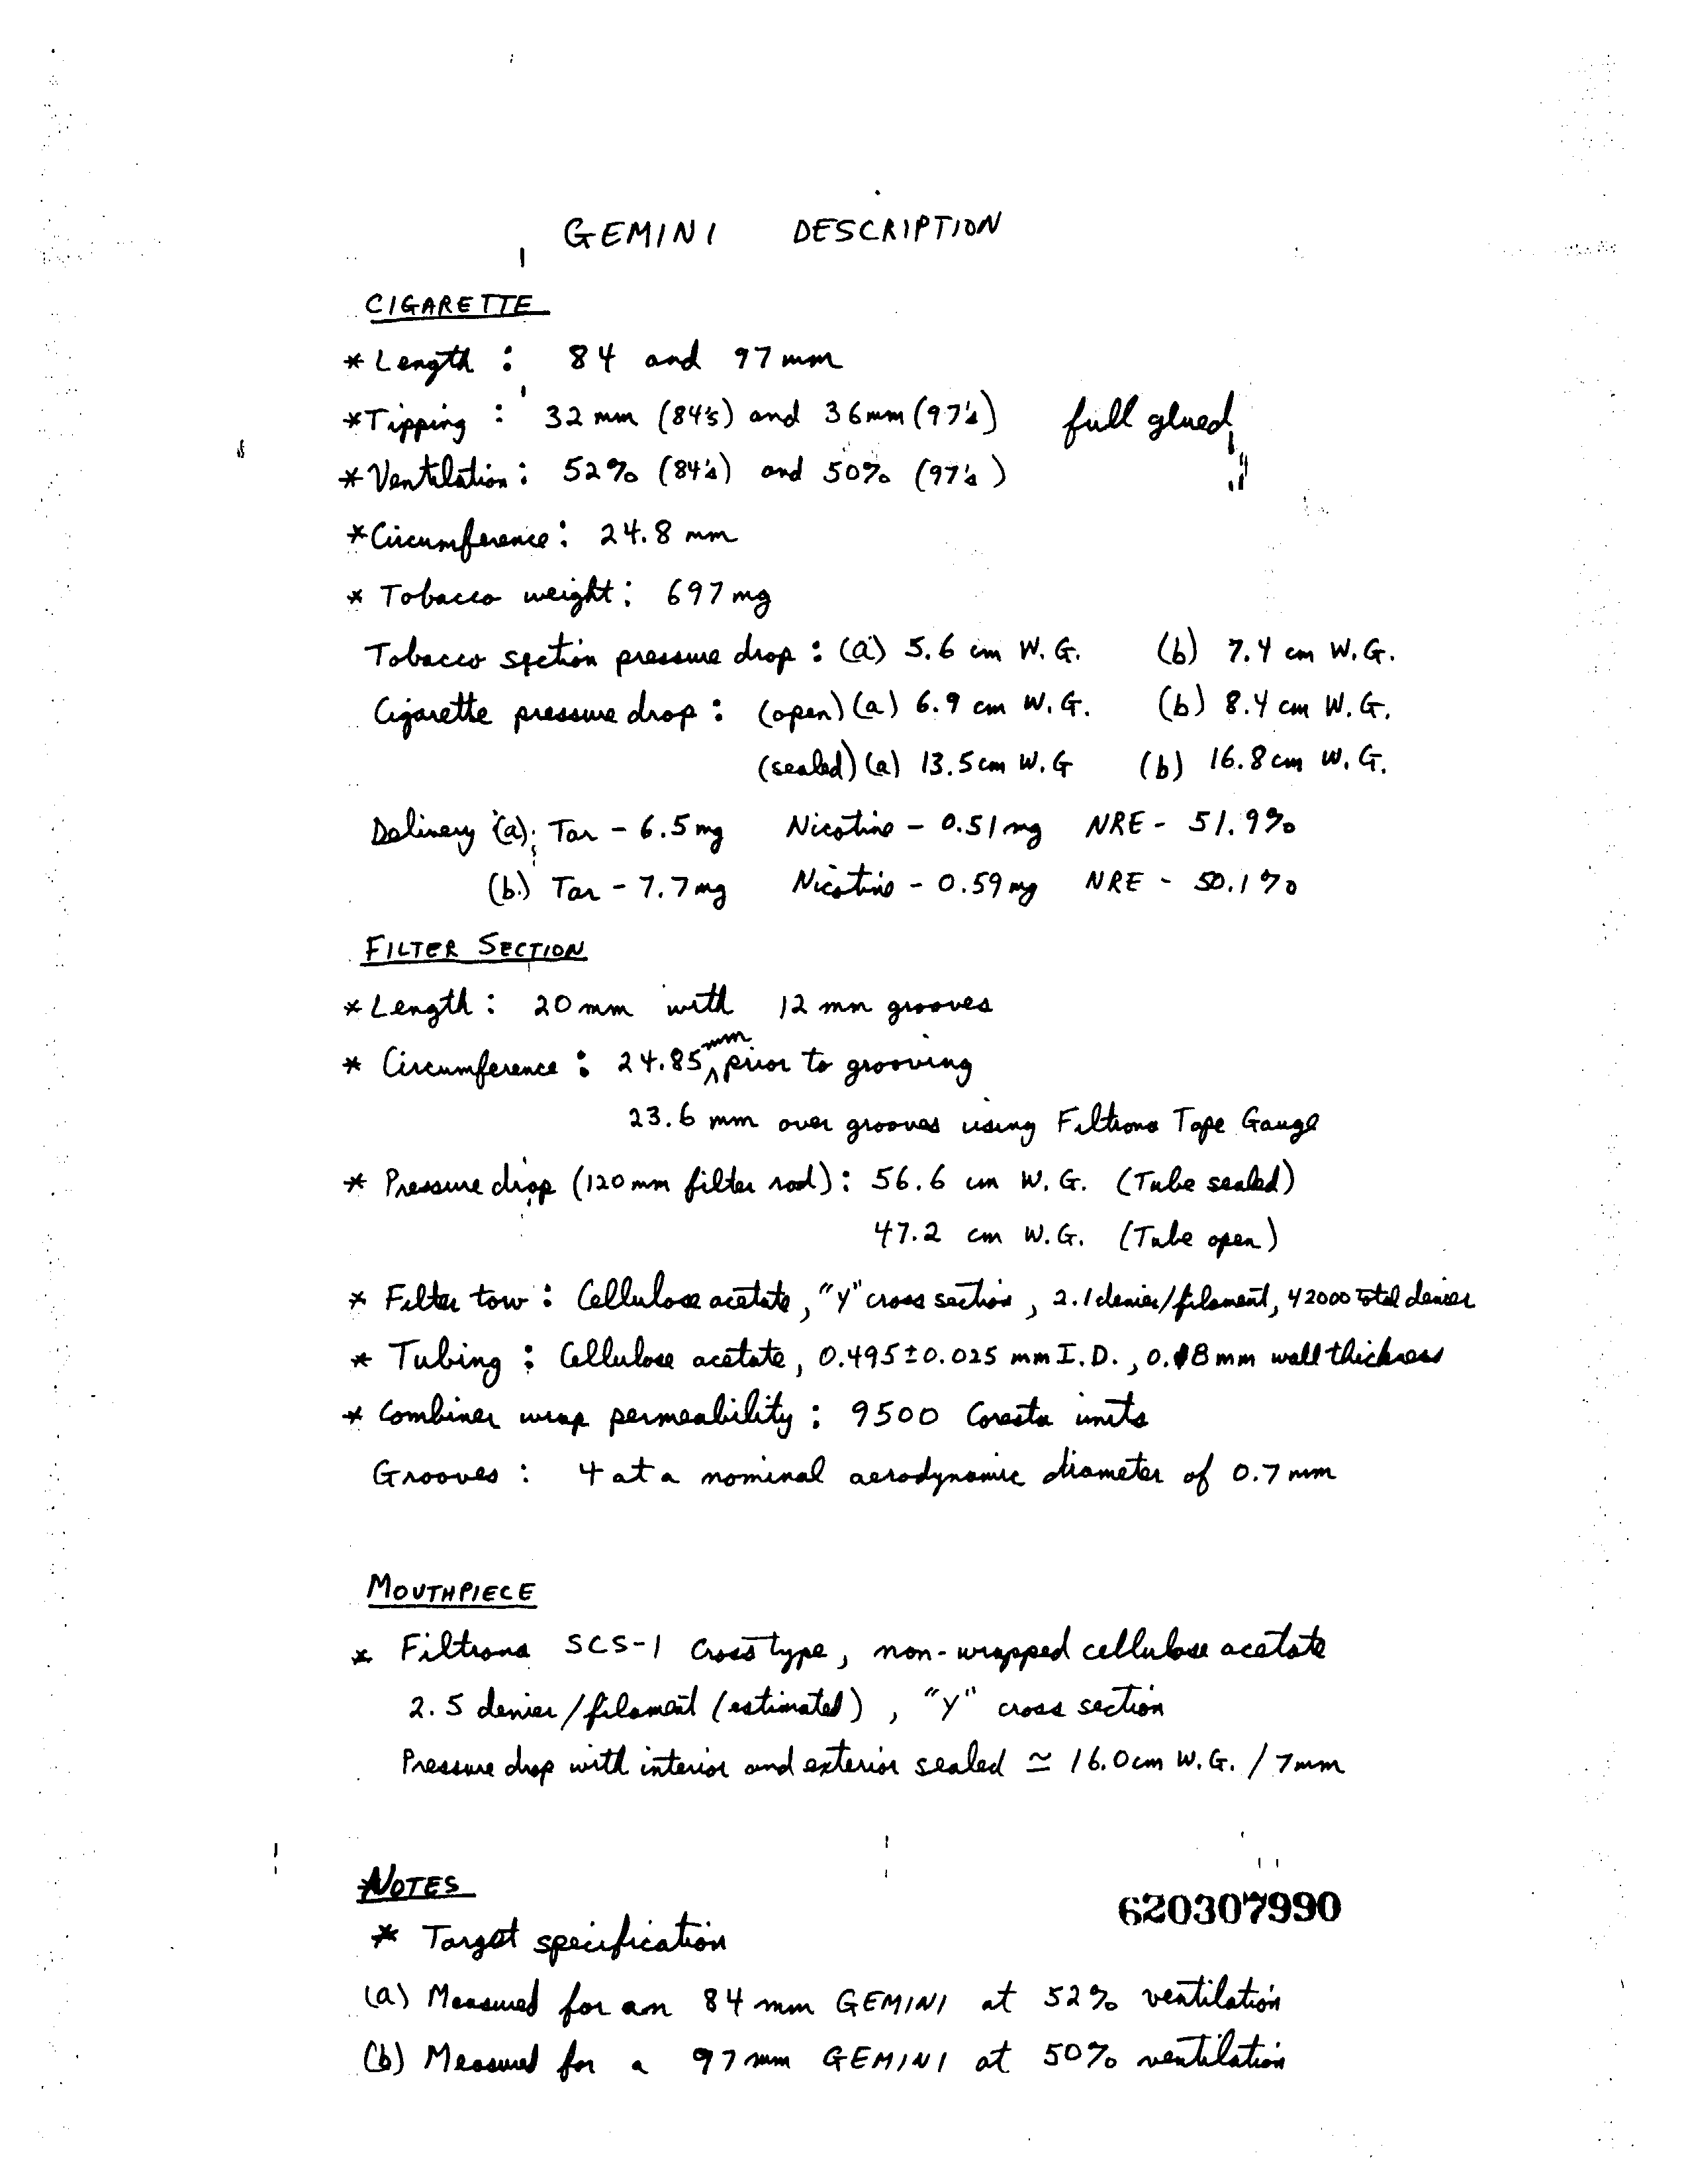 GEMINI DESCRIPTION
CIGARETTE
* Length : 84 and 97 mm
* Tipping : 32 mm (84's) and 36 mm (97's) full glued
* Ventilation : 52% (84's) and 50% (97's)
* Circumference : 24.8 mm
* Tobacco weight : 697 mg
Tobacco section pressure drop : (a) 5.6 cm W.G. (b) 7.4 cm W.G.
Cigarette pressure drop : (open) (a) 6.9 cm W.G. (b) 8.4 cm W.G.
(sealed) (a) 13.5 cm W.G (b) 16.8 cm W.G.
Delivery (a): Tar - 6.5 mg Nicotine - 0.51 mg NRE - 51.9%
(b) Tar - 7.7 mg Nicotine - 0.59 mg NRE - 50.1%
FILTER SECTION
* Length : 20 mm with 12 mm grooves
* Circumference : 24.85 mm prior to grooving
23.6 mm over grooves using Filtrona Tape Gauge
* Pressure drop (120 mm filter rod) : 56.6 cm W.G. (Tube sealed)
47.2 cm W.G. (Tube open)
* Filter tow : Cellulose acetate, "Y" cross section, 2.1 denier/filament, 42000 total denier
* Tubing : Cellulose acetate, 0.495 ± 0.025 mm I.D., 0.18 mm wall thickness
* Combiner wrap permeability : 9500 Coresta units
Grooves : 4 at a nominal aerodynamic diameter of 0.7 mm
MOUTHPIECE
* Filtrona SCS-1 Cross type, non-wrapped cellulose acetate
2.5 denier/filament (estimated), "Y" cross section
Pressure drop with interior and exterior sealed ≃ 16.0 cm W.G. / 7 mm
NOTES
620307990
* Target specification
(a) Measured for an 84 mm GEMINI at 52% ventilation
(b) Measured for a 97 mm GEMINI at 50% ventilation